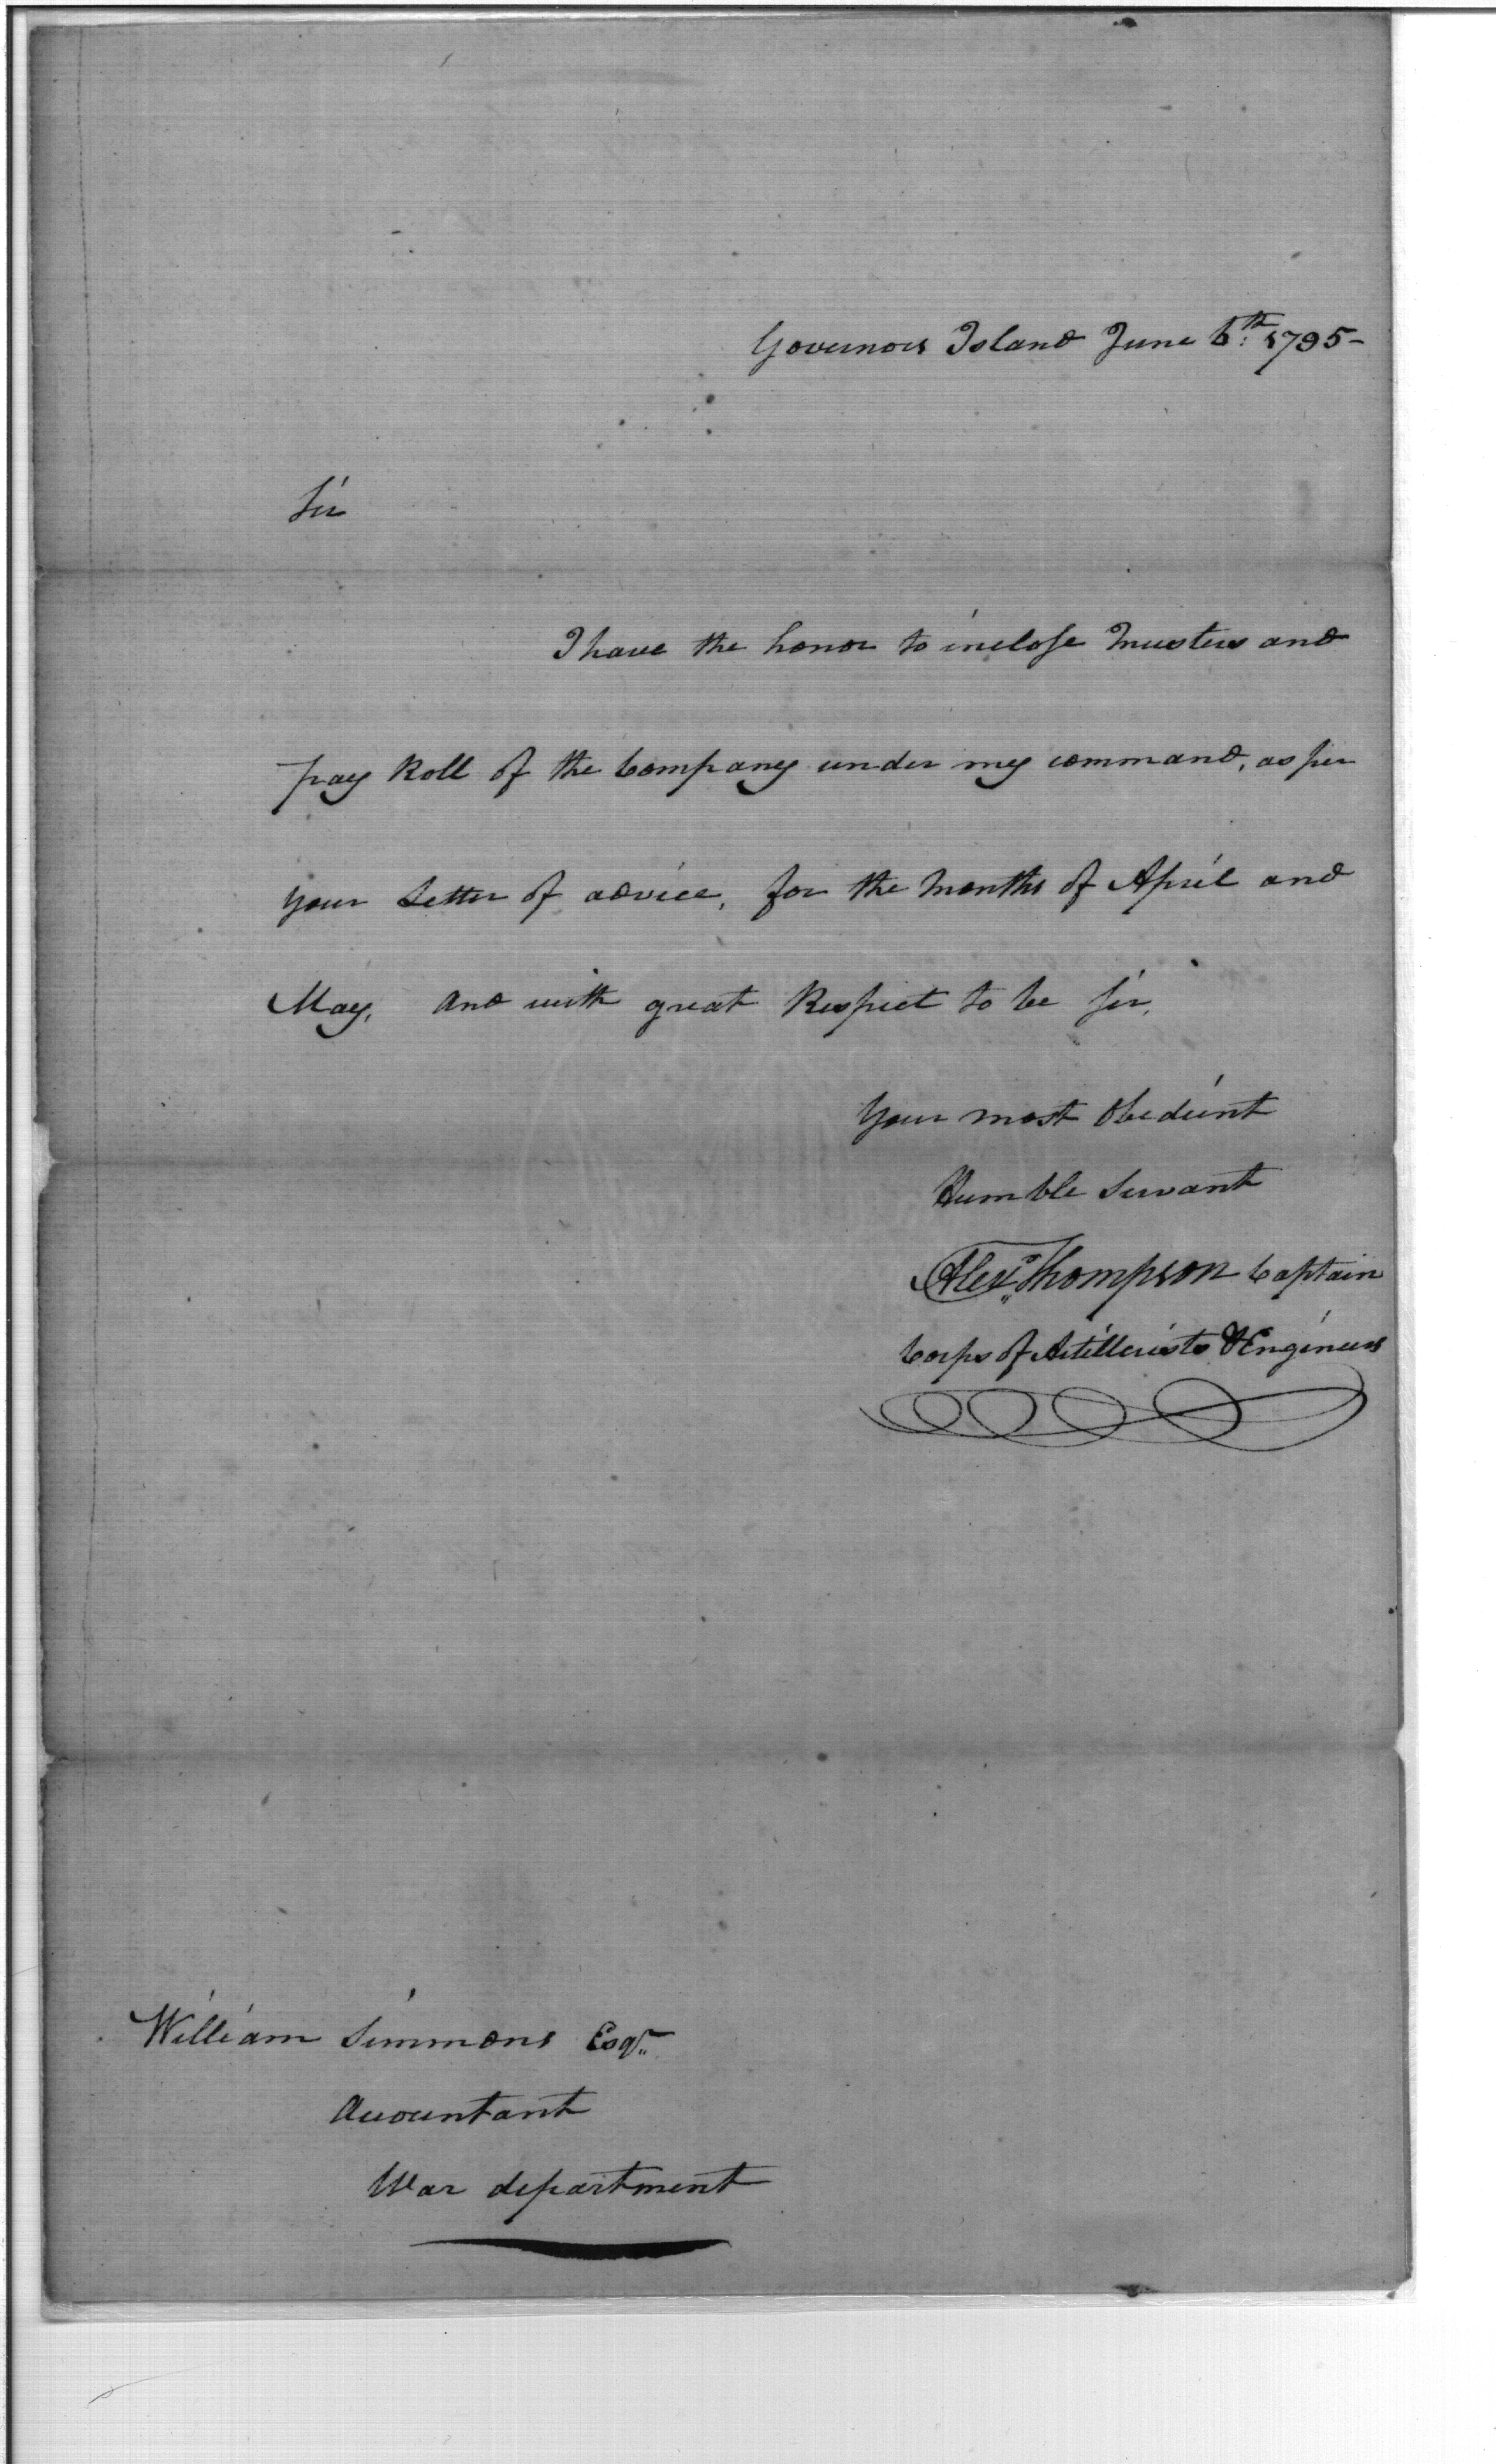 Governors Island June 6th: 1795-
Sir
I have the honor to inclose Musters and
pay Roll of the Company under my command, as per
your Letter of advice, for the Months of April and
May, and with great Respect to be Sir,
Your most Obedient
Humble Servant
Alexr. Thompson Captain
Corps of Artillerists & Engineers
William Simmons Esqr.
Accountant
War department